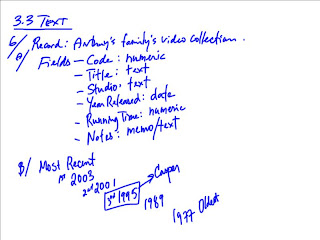 3.3 TEXT
6/ Record: Anthony's family's video collection.
A/ Fields - Code: numeric
- Title: text
- Studio: text
- Year Released: date
- Running Time: numeric
- Notes: memo/text
B/ Most Recent
1st 2003
2nd 2001
3rd 1995 → Casper
1989
1977 Oldest